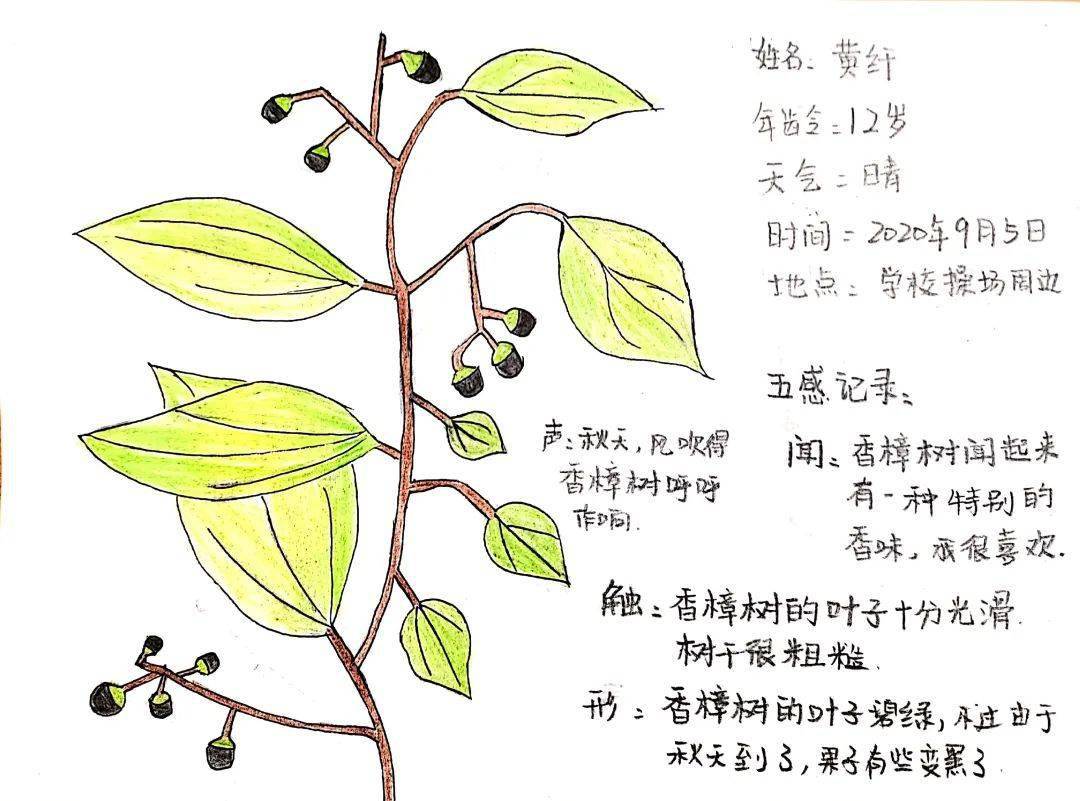 姓名：黄纤
年龄：12岁
天气：晴
时间：2020年9月5日
地点：学校操场周边
五感记录：
闻：香樟树闻起来
有一种特别的
香味，我很喜欢.
声：秋天，风吹得
香樟树呼呼
作响.
触：香樟树的叶子十分光滑.
树干很粗糙.
形：香樟树的叶子碧绿，不过由于
秋天到了，果子有些变黑了.